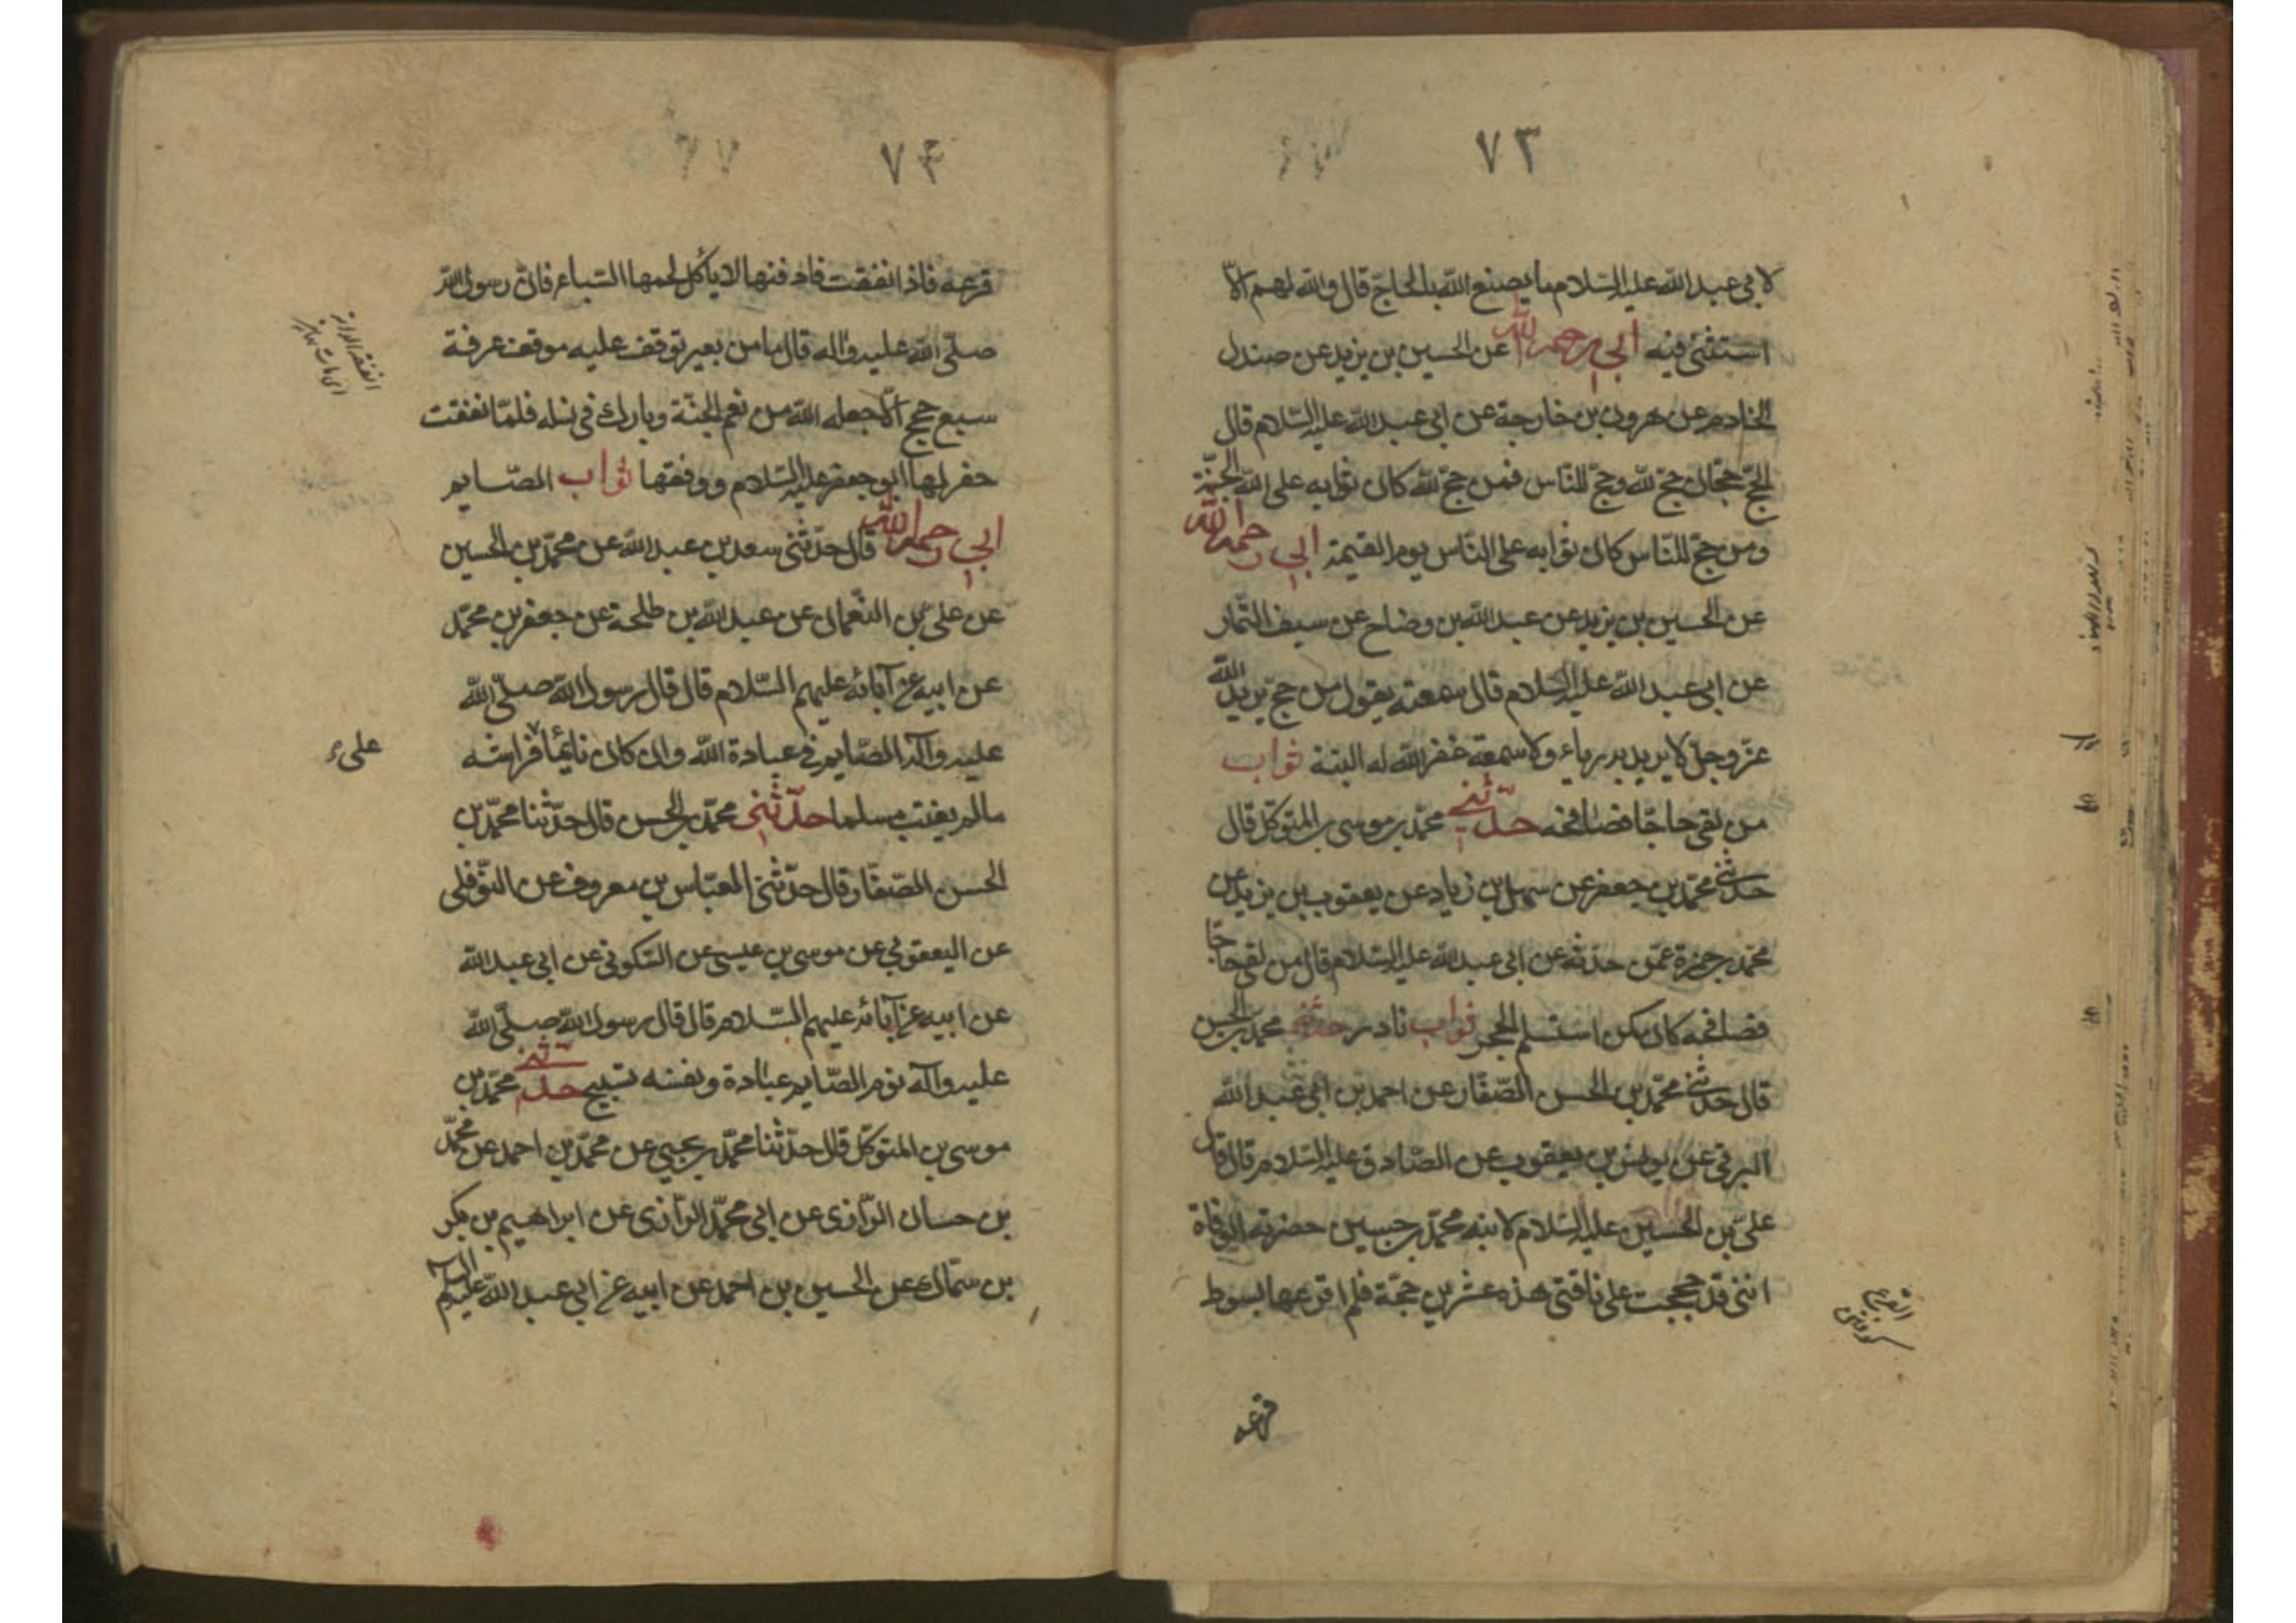 ٧٣
لابي عبد الله عليه السلام ما يصنع الله بالحاج قال والله لهم الا
استثنى فيه ابي رحمه الله عن الحسين بن يزيد عن صندل
الخادم عن هرون بن خارجة عن ابي عبد الله عليه السلام قال
الحج حجان حج لله وحج للناس فمن حج لله كان ثوابه على الله الجنة
ومن حج للناس كان ثوابه على الناس يوم القيمة ابي رحمه الله
عن الحسين بن يزيد عن عبد الله بن وضاح عن سيف التمار
عن ابي عبد الله عليه السلام قال سمعته يقول من حج يريد الله
عز وجل لا يريد به رياء ولا سمعة غفر الله له البتة ثواب
من لقى حاجا فصافحه حدثني محمد بن موسى بن المتوكل قال
حدثني محمد بن جعفر عن سهل بن زياد عن يعقوب بن يزيد عن
محمد بن حمزة عمن حدثه عن ابي عبد الله عليه السلام قال من لقى حاجا
فصافحه كان كمن استلم الحجر ثواب نادر حدثني محمد بن الحسن
قال حدثني محمد بن الحسن الصفار عن احمد بن ابي عبد الله
البرقي عن يونس بن يعقوب عن الصادق عليه السلام قال قال
علي بن الحسين عليه السلام لابنه محمد حين حضرته الوفاة
انني قد حججت على ناقتي هذه عشرين حجة فلم اقرعها بسوط
قرعه
٧٤
قرعه فاذا نفقت فادفنها لا يأكل لحمها السباع فان رسول الله
صلى الله عليه واله قال ما من بعير توقف عليه موقف عرفة
سبع حجج الا جعله الله من نعم الجنة وبارك في نسله فلما نفقت
حفر لها ابو جعفر عليه السلام ودفنها ثواب الصايم
ابي رحمه الله قال حدثني سعد بن عبد الله عن محمد بن الحسين
عن علي بن النعمان عن عبد الله بن طلحة عن جعفر بن محمد
عن ابيه عن آبائه عليهم السلام قال قال رسول الله صلى الله
عليه وآله الصايم في عبادة الله وان كان نايما فراشه
على
مالم يغتب مسلما حدثني محمد بن الحسن قال حدثنا محمد بن
الحسن الصفار قال حدثني العباس بن معروف عن النوفلي
عن اليعقوبي عن موسى بن عيسى عن السكوني عن ابي عبد الله
عن ابيه عن آبائه عليهم السلام قال قال رسول الله صلى الله
عليه وآله نوم الصايم عبادة ونفسه تسبيح حدثني محمد بن
موسى بن المتوكل قال حدثنا محمد بن يحيى عن محمد بن احمد عن محمد
بن حسان الرازي عن ابي محمد الرازي عن ابراهيم بن بكر
بن سماك عن الحسين بن احمد عن ابيه عن ابي عبد الله عليه السلم